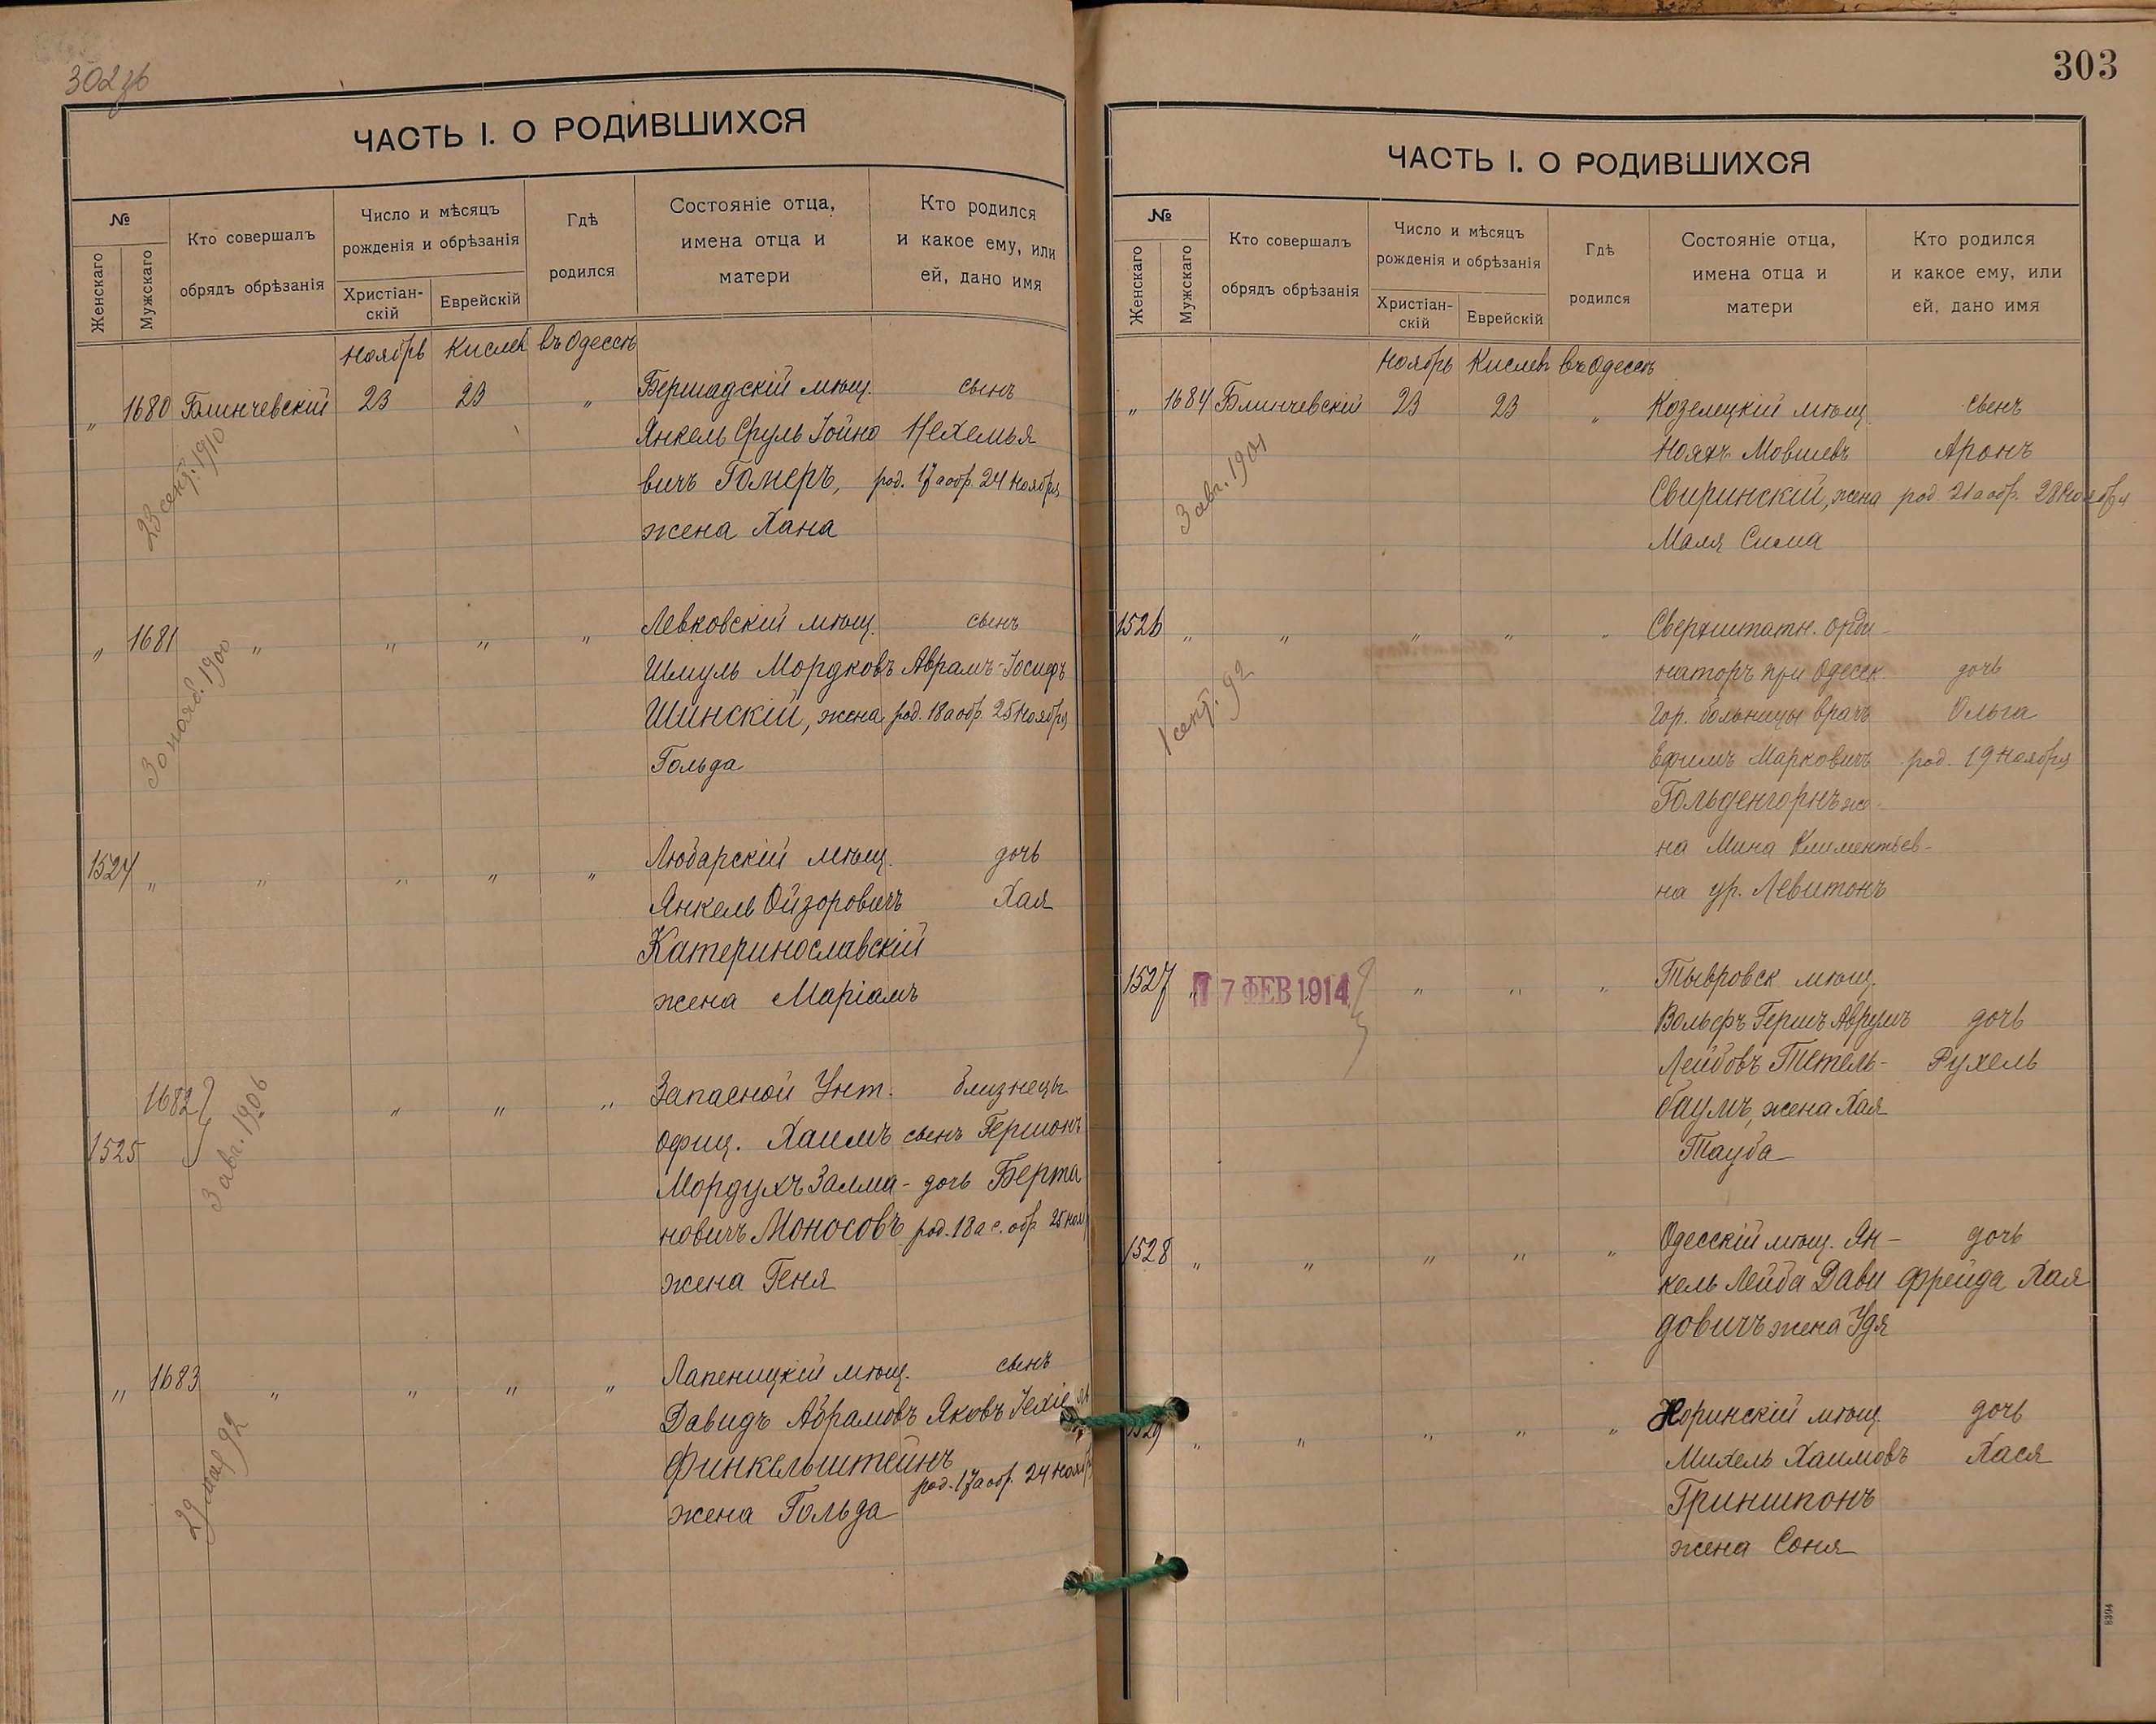 302 об
ЧАСТЬ I. О РОДИВШИХСЯ
№
Женскаго
Мужскаго
Кто совершалъ
обрядъ обрѣзанія
Число и мѣсяцъ
рожденія и обрѣзанія
Христіан-
скій
Еврейскій
Гдѣ
родился
Состояніе отца,
имена отца и
матери
Кто родился
и какое ему, или
ей, дано имя
Ноябрь Кислевъ въ Одессѣ
„ 1680 Блинчевскій 23 23 „ Бершадскій мѣщ. сынъ
Янкель Сруль Іойно Нехемья
вичъ Гомеръ, род. 17 а обр. 24 Ноября
жена Хана
23 сент. 1910
„ 1681 „ „ „ „ Левковскій мѣщ. сынъ
Шмуль Мордковъ Аврамъ-Іосифъ
Шинскій, жена род. 18 а обр. 25 Ноября
Гольда
30 нояб. 1900
1524 „ „ „ „ „ Любарскій мѣщ. дочь
Янкель Ойзоровичъ Хая
Катеринославскій
жена Маріамъ
1682 „ „ „ Запасной Унт. близнецы
1525 офиц. Хаимъ сынъ Гершонъ
Мордухъ Залма- дочь Берта
новичъ Моносовъ род. 18 а с. обр. 25 ноя
жена Геня
3 авг. 1906
„ 1683 „ „ „ „ Лапеницкій мѣщ. сынъ
Давидъ Абрамовъ Яковъ Іехіель
Финкельштейнъ
род. 17 а обр. 24 Ноябр
жена Гольда
29 мая 92
303
ЧАСТЬ I. О РОДИВШИХСЯ
№
Женскаго
Мужскаго
Кто совершалъ
обрядъ обрѣзанія
Число и мѣсяцъ
рожденія и обрѣзанія
Христіан-
скій
Еврейскій
Гдѣ
родился
Состояніе отца,
имена отца и
матери
Кто родился
и какое ему, или
ей, дано имя
Ноябрь Кислевъ въ Одессѣ
„ 1684 Блинчевскій 23 23 „ Козелецкій мѣщ. сынъ
Ноахъ Мовшевъ Аронъ
Свиринскій, жена род 21 а обр. 28 Ноября
Маля Сима
3 авг. 1901
1526 „ „ „ „ „ Сверхштатн. орди-
наторъ при Одесск. дочь
гор. больницы врачъ Ольга
Ефимъ Марковичъ род. 19 Ноября
Гольденгорнъ же-
на Мина Климентьев-
на ур. Левитонъ
1 сент. 92
1527 „ 17 ФЕВ 1914 „ „ „ Тывровск мѣщ.
Вольфъ Гершъ Аврумъ дочь
Лейбовъ Тетель- Рухель
баумъ, жена Хая
Тауба
1528 „ „ „ „ „ Одесскій мѣщ. Ян- дочь
кель Лейба Дави Фрейда Хая
довичъ жена Удя
1529 „ „ „ „ „ Норинскій мѣщ. дочь
Михель Хаимовъ Хася
Гриншпонъ
жена Соня
8394